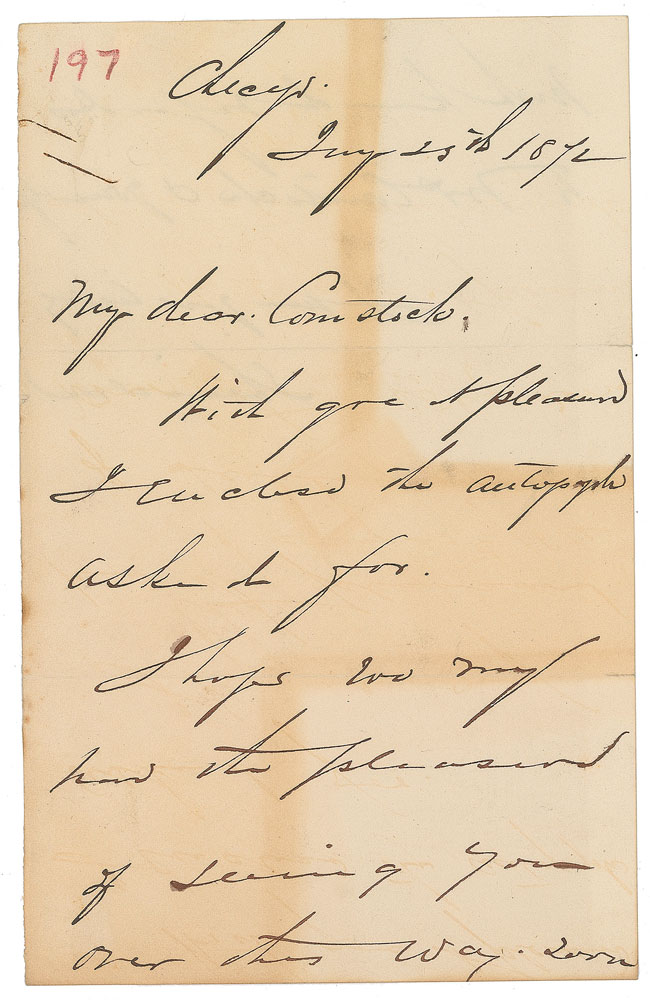 197
Chicago.
July 25th 1872
My dear. Comstock.
With great pleasure
I enclose the autograph
asked for.
I hope we may
have the pleasure
of seeing you
over this way. soon